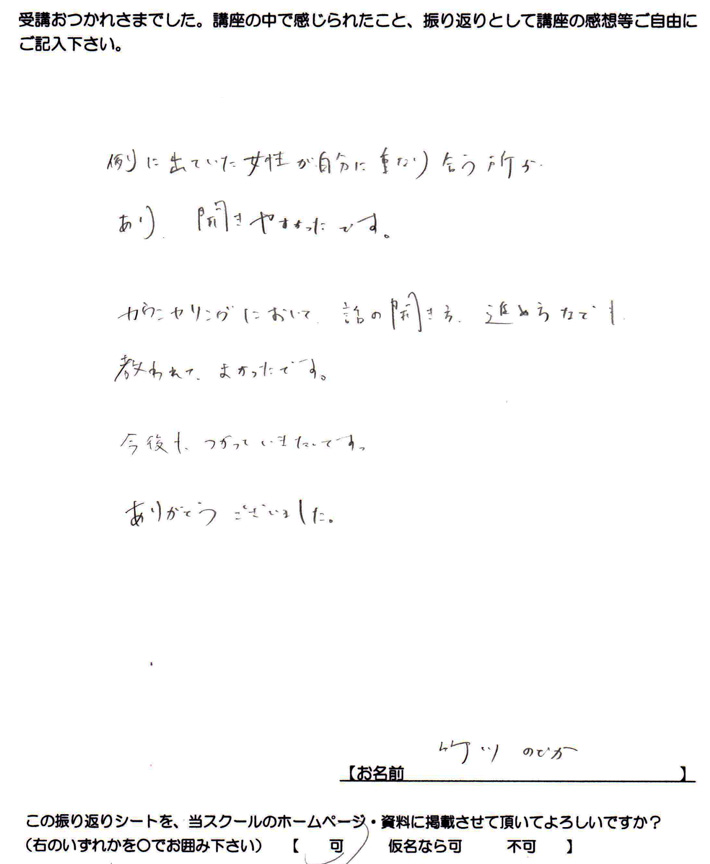 受講おつかれさまでした。講座の中で感じられたこと、振り返りとして講座の感想等ご自由に
ご記入下さい。
例に出ていた女性が自分に重なり合う所が
あり、聞きやすかったです。
カウンセリングにおいて、話の聞き方、進め方なども
教われて、よかったです。
今後も、つかっていきたいです。
ありがとうございました。
竹川 のどか
【お名前 】
この振り返りシートを、当スクールのホームページ・資料に掲載させて頂いてよろしいですか？
（右のいずれかを〇でお囲み下さい） 【 可 仮名なら可 不可 】